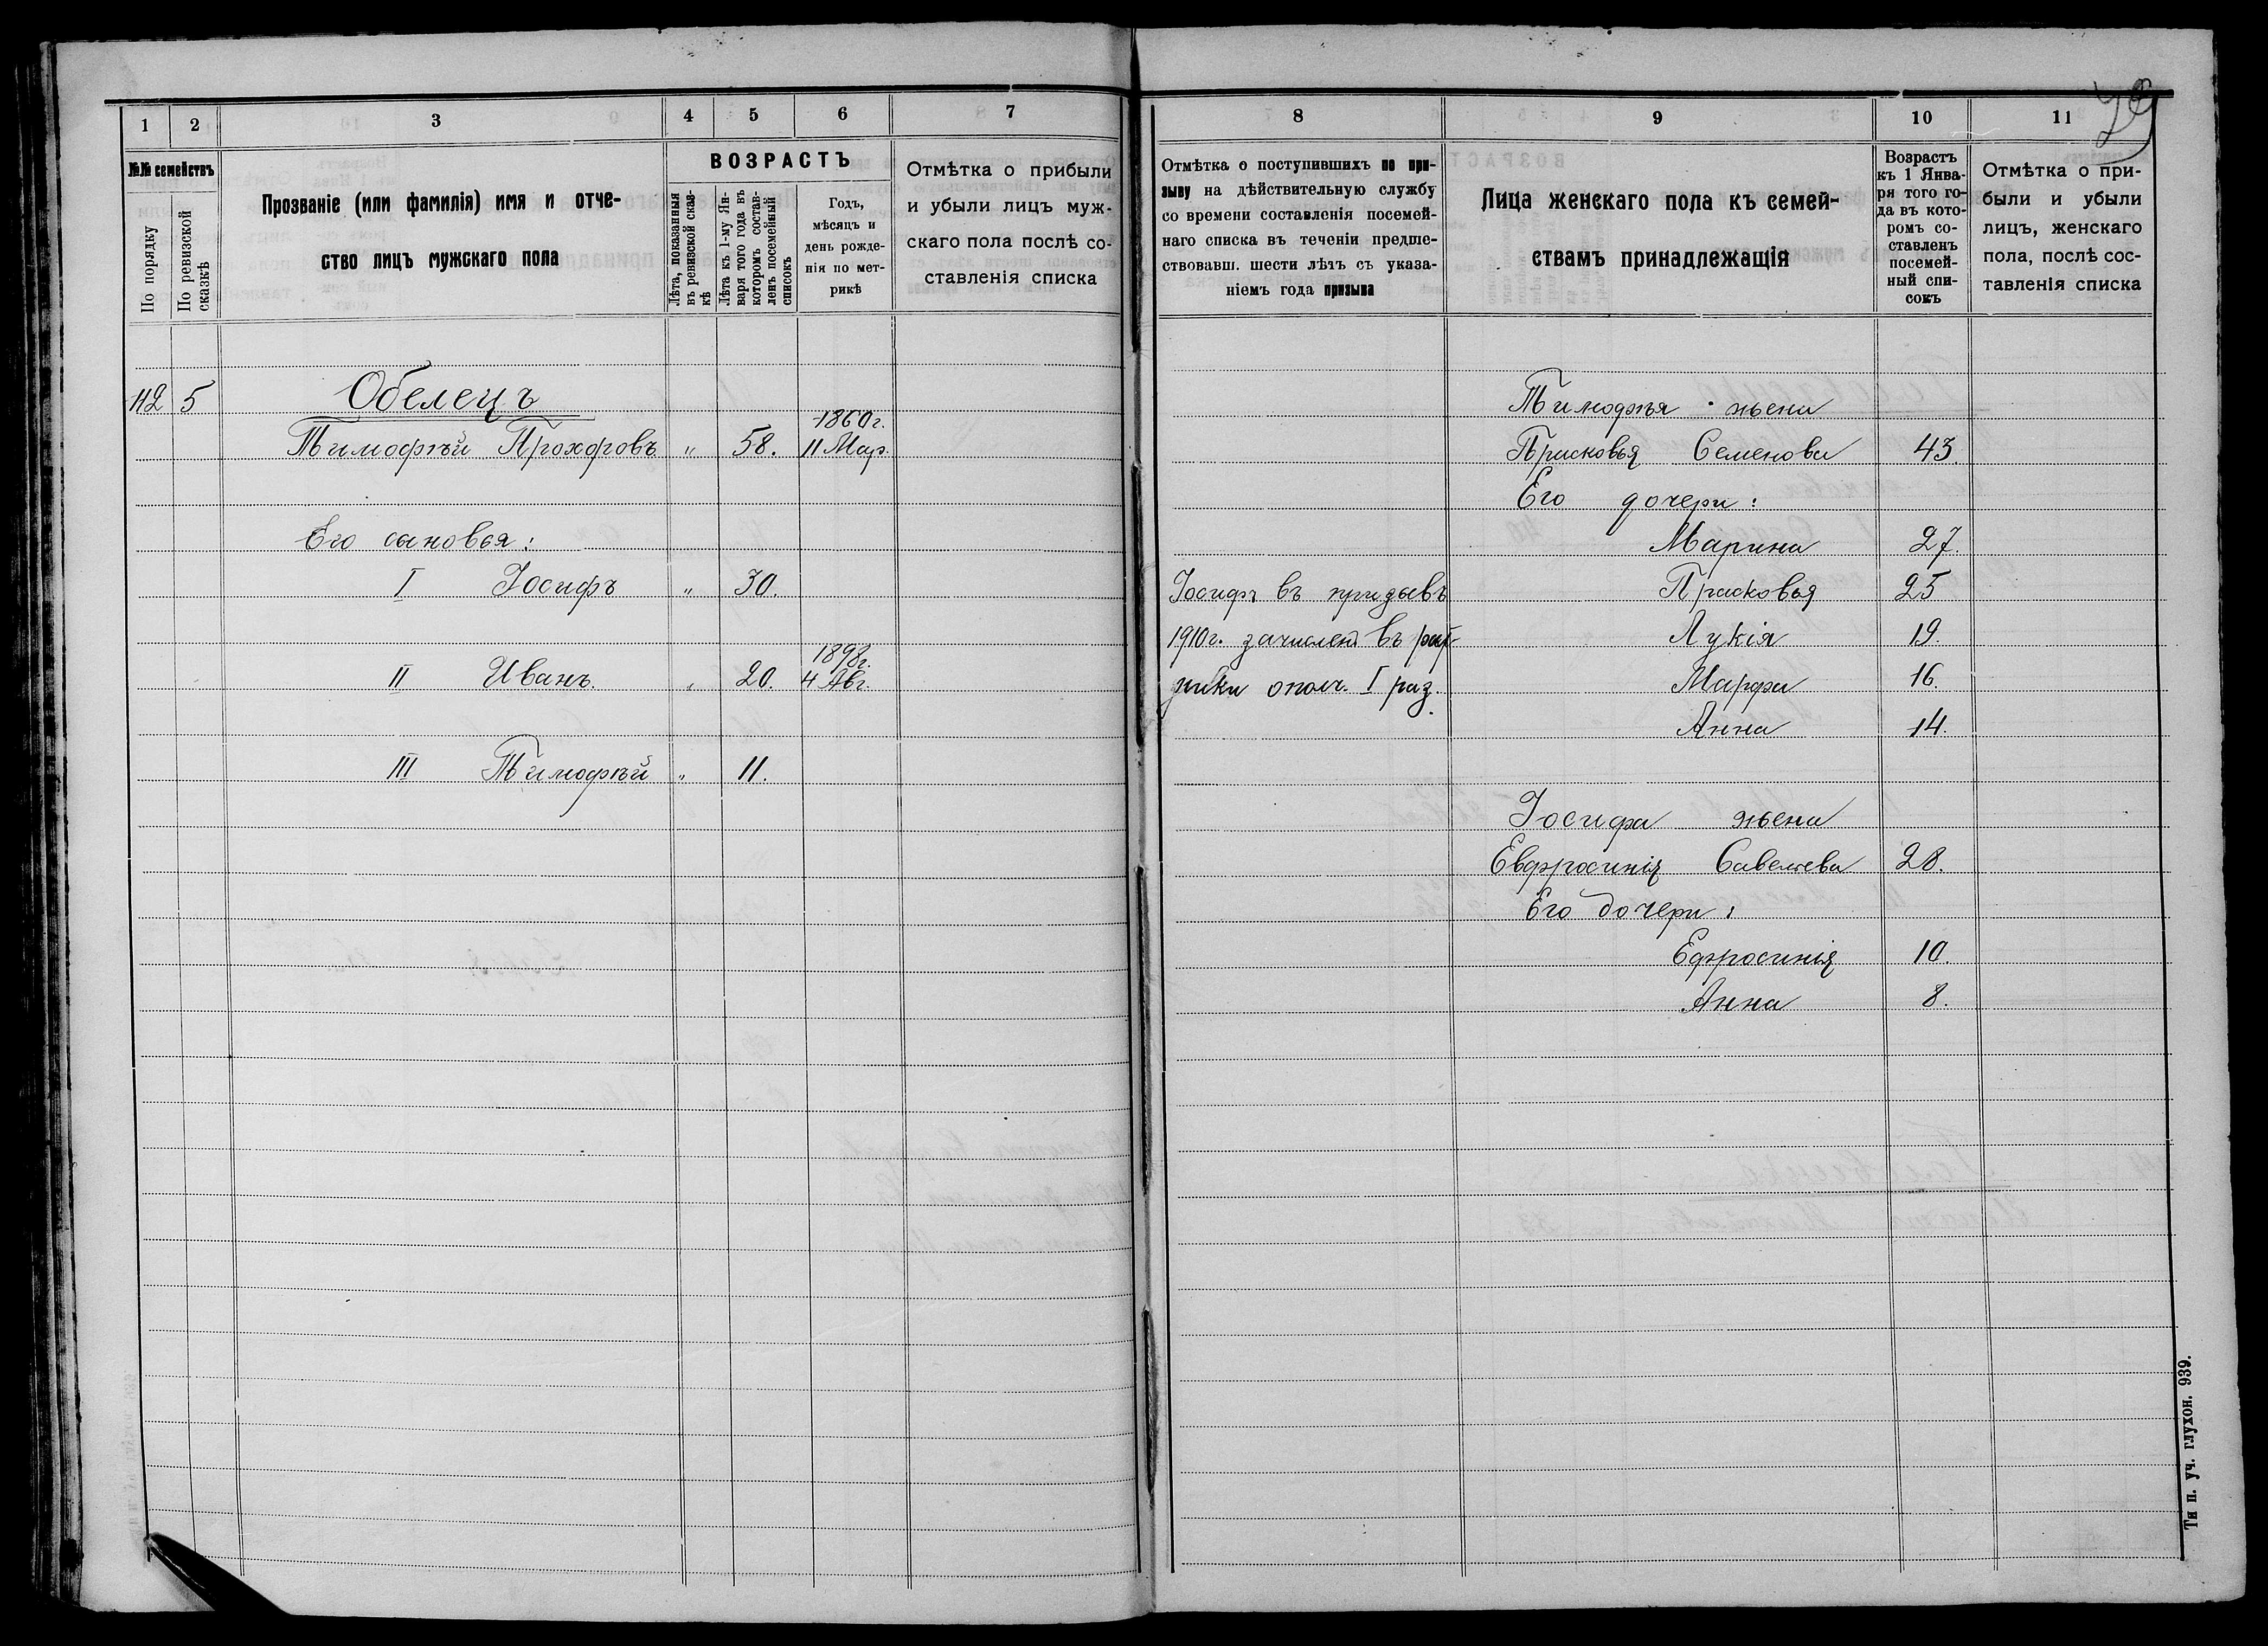 1 2 3 4 5 6 7
№№ семействъ
По порядку
По ревизской сказкѣ
Прозваніе (или фамилія) имя и отче-
ство лицъ мужскаго пола
ВОЗРАСТЪ
Лѣта, показанныя
въ ревизской сказ-
кѣ
Лѣта къ 1-му Ян-
варя того года въ
которомъ состав-
ленъ посемейный
списокъ
Годъ,
мѣсяцъ и
день рожде-
нія по мет-
рикѣ
Отмѣтка о прибыли
и убыли лицъ муж-
скаго пола послѣ со-
ставленія списка
112 5 Обелецъ
1860г.
Тимофѣй Прохоровъ " 58. 11 Мар.
Его сыновья:
I Іосифъ " 30.
1898г.
II Иванъ. " 20. 4 Авг.
III Тимофѣй " 11.
8 9 10 11
Отмѣтка о поступившихъ по при-
зыву на дѣйствительную службу
со времени составленія посемей-
наго списка въ теченіи предше-
ствовавш. шести лѣтъ съ указа-
ніемъ года призыва
Лица женскаго пола къ семей-
ствамъ принадлежащія
Возрастъ
къ 1 Янва-
ря того го-
да въ кото-
ромъ со-
ставленъ
посемей-
ный спи-
сокъ
Отмѣтка о при-
были и убыли
лицъ, женскаго
пола, послѣ сос-
тавленія списка
Тимофѣя жена
Прасковья Семенова 43.
Его дочери:
Марина 27.
Іосифъ въ призывъ Прасковья 25
1910г. зачисленъ въ рат- Лукія 19.
ники ополч. I раз. Марфа 16.
Анна 14.
Іосифа жена
Евфросинія Савельева 28.
Его дочери:
Ефросинія 10.
Анна 8.
Тип. уч. глухон. 939.